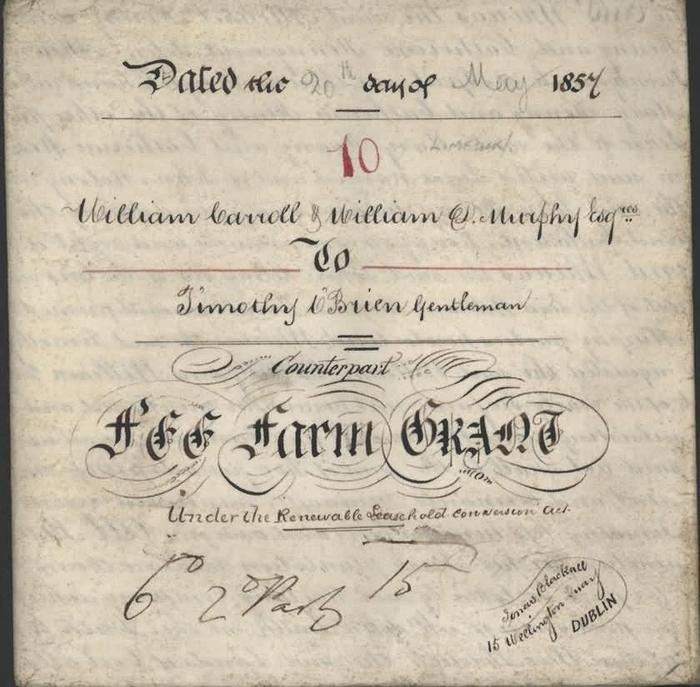 Dated the 20th day of May 1857
10 Limerick
William Carroll & William C. Murphy Esqres
To
Timothy O'Brien Gentleman
Counterpart
FEE Farm GRANT
Under the Renewable Leasehold conversion act.
6 2d Party 15
Jonas Blackall
15 Wellington Quay
DUBLIN